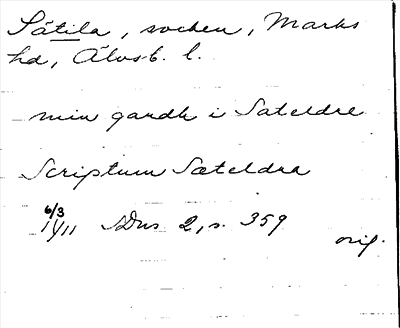 Sätila, socken, Marks
hd, Älvsb. l.
min gardh i Sateldre
Scriptum Sateldra
6/3
1411 SDns 2, s. 359
orig.